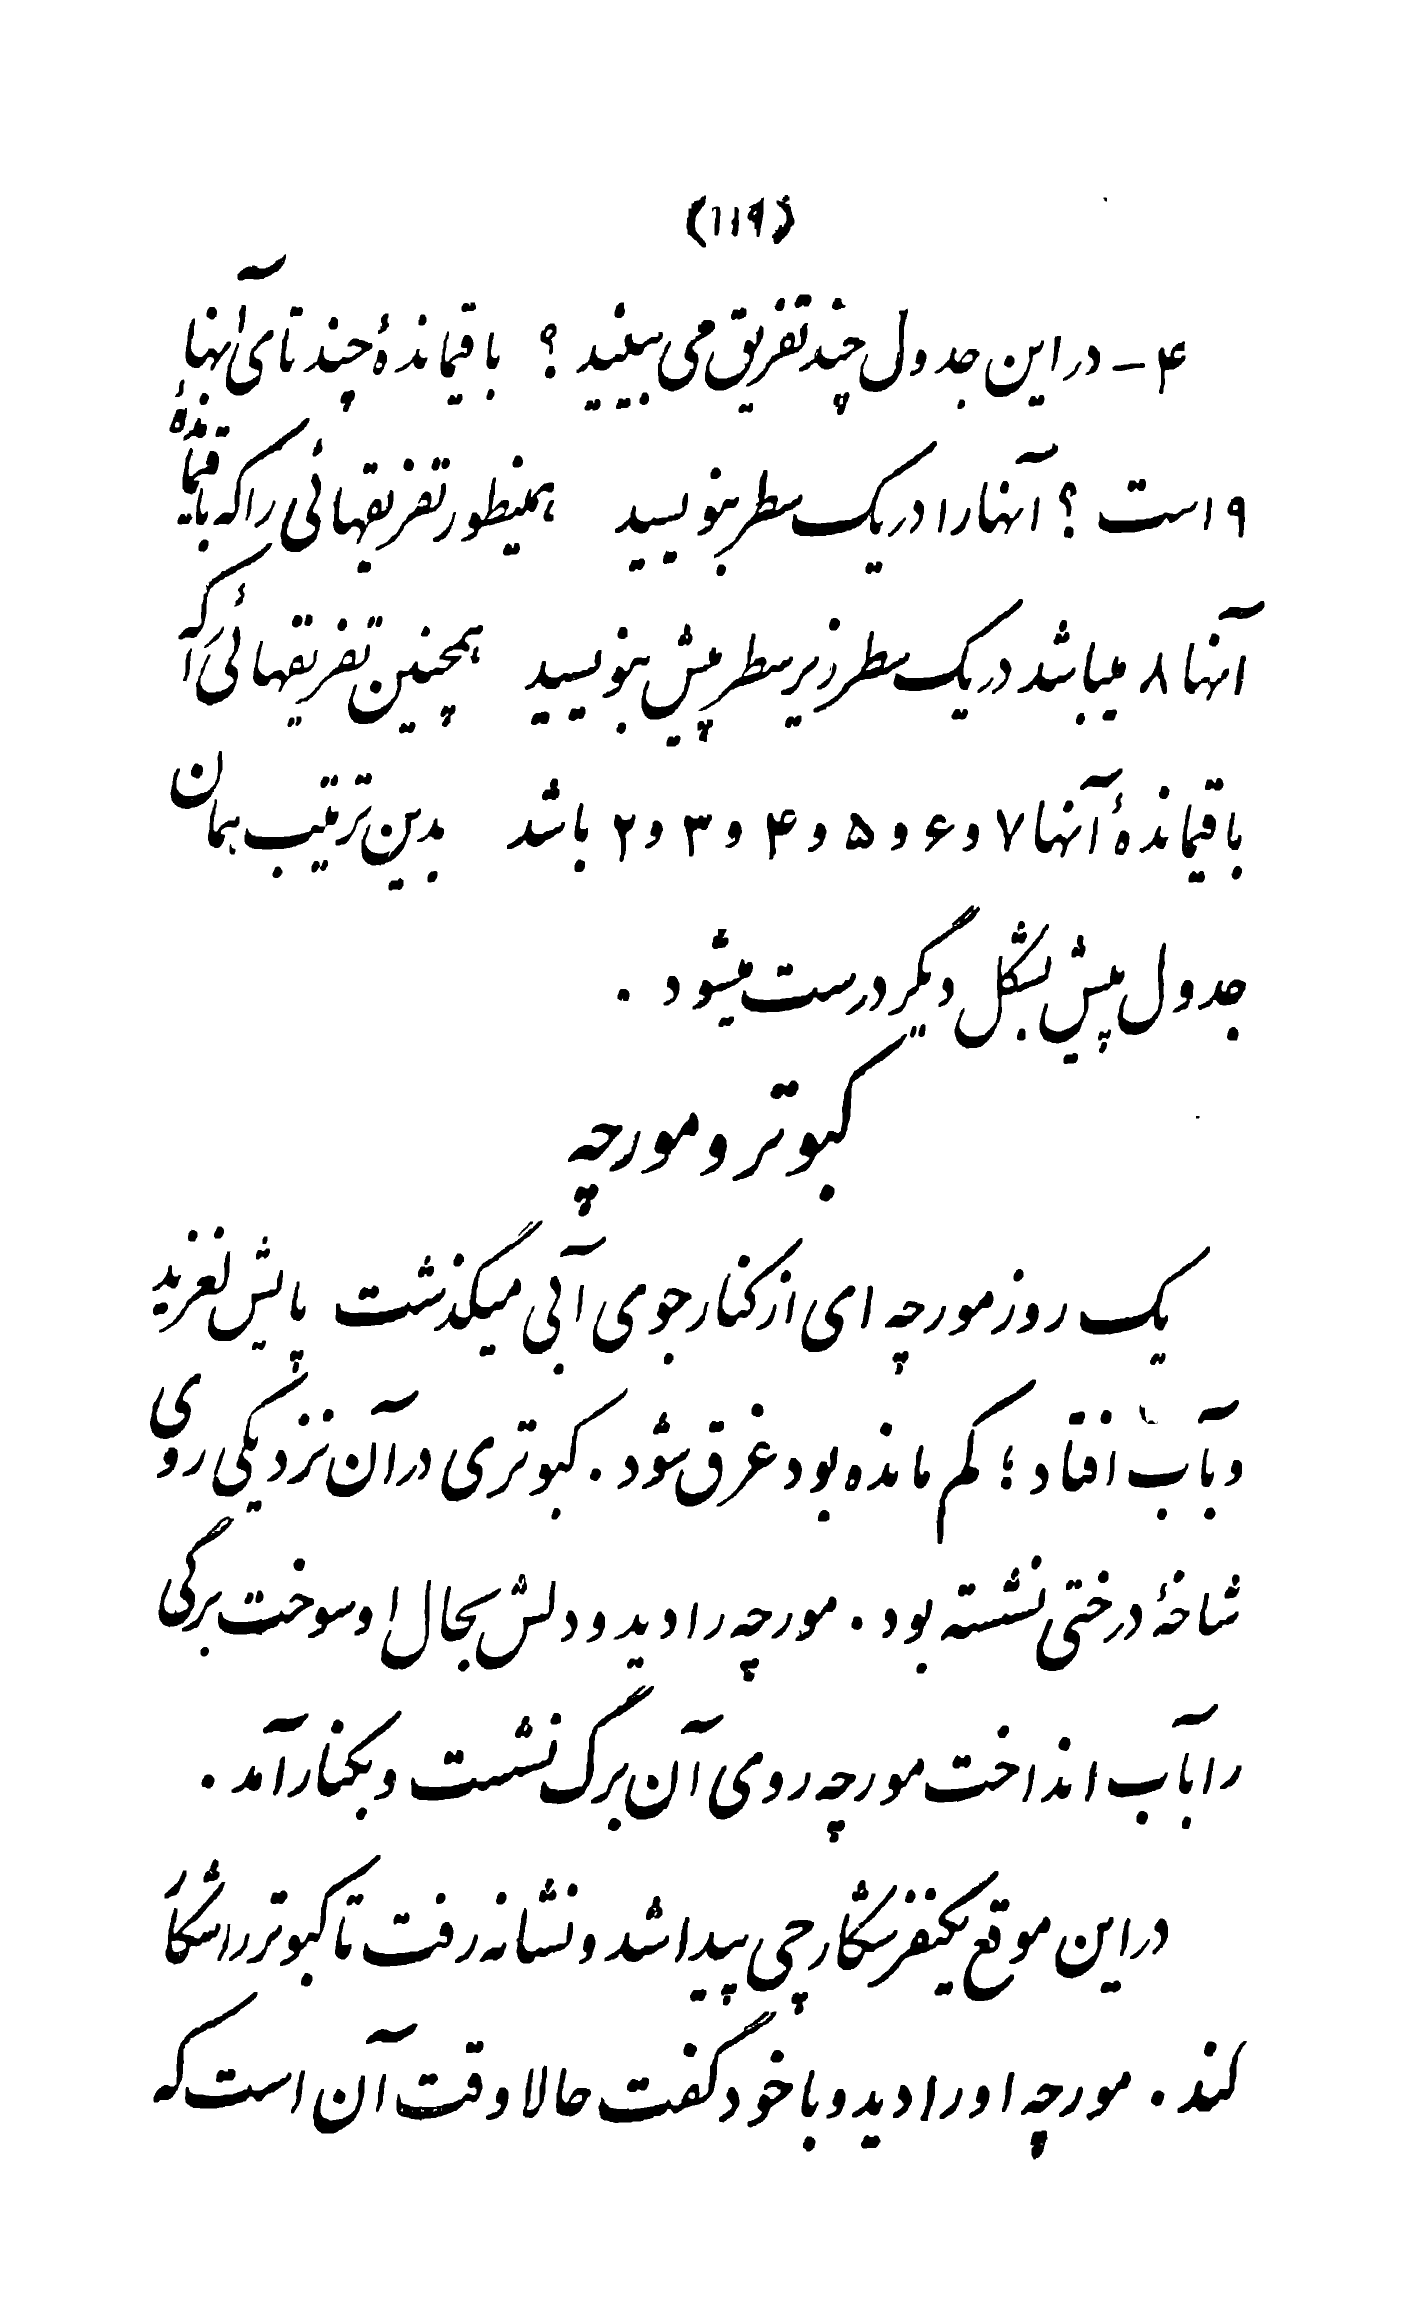 (۱۱۹)
۴ - در این جدول چند تفریق می بینید ؟ باقیماندهٔ چند تای آنها
۹ است ؟ آنها را در یک سطر بنویسید همینطور تفریقهائی را که باقیماندهٔ
آنها ۸ میباشد در یک سطر زیر سطر پیش بنویسید همچنین تفریقهائی را که
باقیماندهٔ آنها ۷ و ۶ و ۵ و ۴ و ۳ و ۲ باشد بدین ترتیب همان
جدول پیش بشکل دیگر درست میشود .
کبوتر و مورچه
یک روز مورچه ای از کنار جوی آبی میگذشت پایش لغزید
و بآب افتاد ؛ کم مانده بود غرق شود . کبوتری در آن نزدیکی روی
شاخهٔ درختی نشسته بود . مورچه را دید و دلش بحال او سوخت برگی
را بآب انداخت مورچه روی آن برگ نشست و بکنار آمد .
در این موقع یکنفر شکارچی پیدا شد و نشانه رفت تا کبوتر را شکار
کند . مورچه او را دید و با خود گفت حالا وقت آن است که